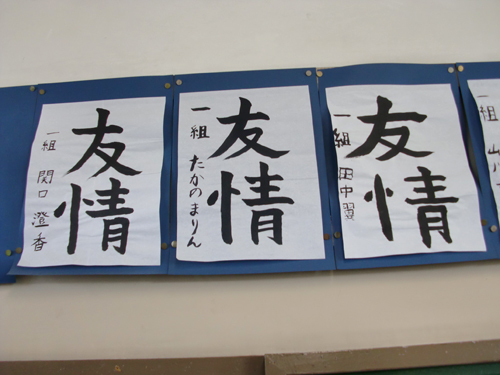 友情
一組 関口 澄香
友情
一組 たかのまりん
友情
一組 田中翼
一組